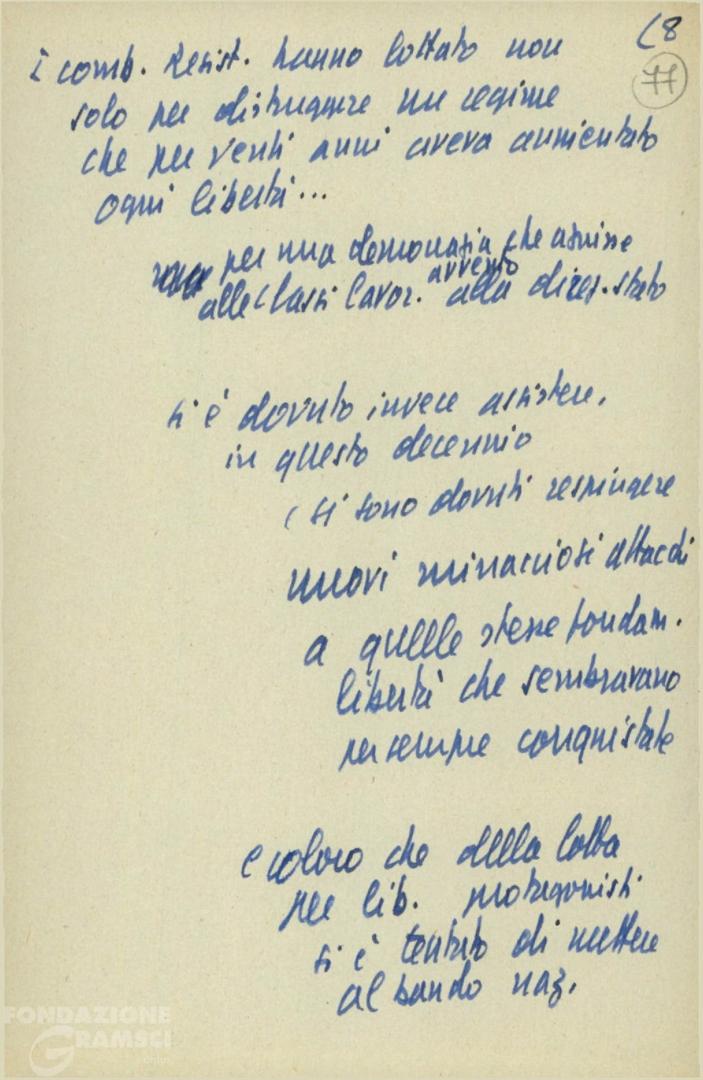 (8
77
i comb. Resist. hanno lottato non
solo per distruggere un regime
che per venti anni aveva annientato
ogni libertà...
per una democrazia che aprisse
avvento
alle classi lavor. alla direz. stato
si è dovuto invece assistere,
in questo decennio
( si sono dovuti respingere
nuovi minacciosi attacchi
a quelle stesse fondam.
libertà che sembravano
per sempre conquistate
e coloro che della lotta
per lib. protagonisti
si è tentato di mettere
al bando naz.
FONDAZIONE
GRAMSCI